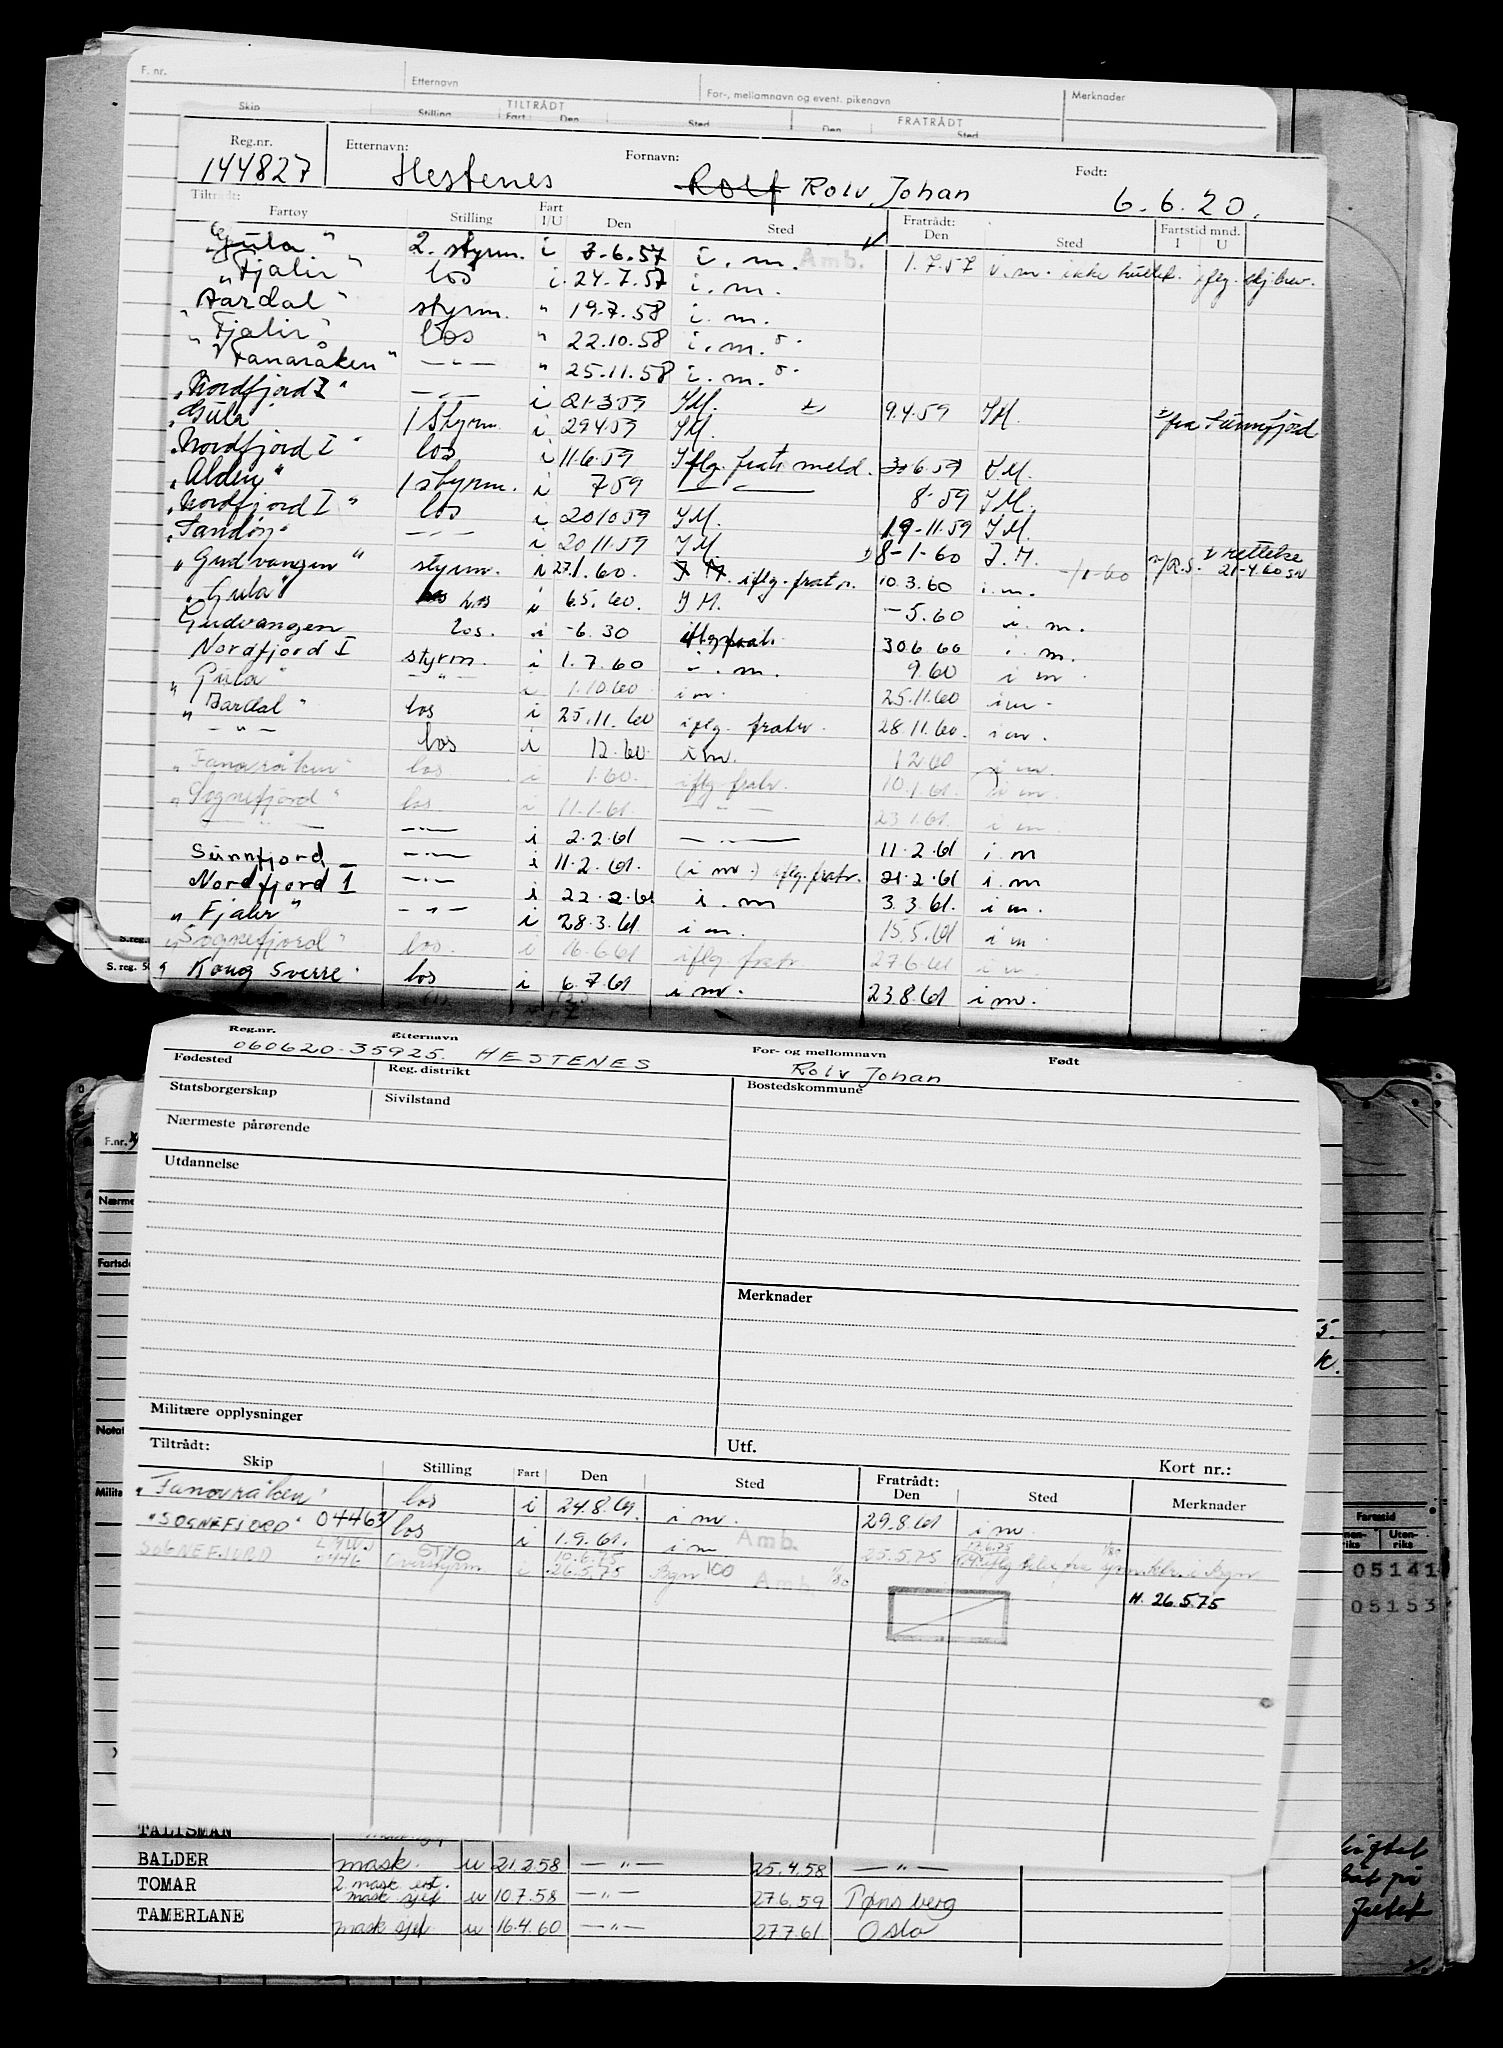 F. nr. Etternavn For-, mellomnavn og event. pikenavn Merknader
Skip Stilling TILTRÅDT Fart Den Sted Den FRATRÅDT Sted
Reg.nr. Etternavn: Fornavn: Født:
144827 Hestenes Rolf Rolv Johan 6.6.20.
Tiltrådt: Fartøy Stilling Fart I/U Den Sted Fratrådt: Den Sted Fartstid mnd. I U
"Gula" 2. styrm. i 3.6.57 i.m. Amb. 1.7.57 i.m. ikke
"Fjalir" los i 24.7.57 i.m.
Aardal" styrm. " 19.7.58 i.m.
"Fjalir" los " 22.10.58 i.m.
"Fanaråken" —"— " 25.11.58 i.m.
"Nordfjord I" —"— i 21.3.59 IM. 9.4.59 IM. fra Sunnfjord
"Gula" 1 styrm. i 29.4.59 IM.
"Nordfjord I" los i 11.6.59 Iflg. fratr meld. 6.59 IM.
"Alden" 1 styrm. i 7 59 —"— 8-59 IM.
"Nordfjord I" los i 20 10 59 IM. 19-11.59 IM.
—"— i 20 11 59 IM. 8-1-60 I.M. rettelse
"Gudvangen" styrm. i 27.1.60. iflg. fratr. 10.3.60 i.m. 21-4.60
"Gula" los i 6.5.60. IM. -5.60 i.m.
Gudvangen los. i -6.30 iflg fratr. 30.6.60 i.m.
Nordfjord I styrm. i 1.7.60 i.m. 9.60 i m
"Gula" —"— i 1.10.60 i m. 25.11.60 i m.
"Aardal" los i 25.11.60 iflg. fratr. 28.11.60. i m.
—"— los i 12.60. i m. 12.60 i m.
"Fanaråken" los i 1.60. iflg fratr. 10.1.61. i m.
"Sognefjord" los i 11.1.61. —"— 23.1.61. i m
—"— —"— i 2.2.61 —"— 11.2.61 i.m
Sunnfjord —"— i 11.2.61. (i m.) iflg. fratr. 21.2.61 i.m
Nordfjord 1 —"— i 22.2.61 i.m 3.3.61. i m.
"Fjalir" —"— i 28.3.61 i m. 15.5.61 i m
"Sognefjord" los. i 16.6.61 iflg. fratr. 27.6.61 i m
"Kong Sverre" los i 6.7.61 i m. 23.8.61 i m.
S.reg.
S. reg. 50
Reg.nr. Etternavn For- og mellomnavn Født
060620-35925. HESTENES Rolv Johan
Fødested Reg. distrikt Bostedskommune
Statsborgerskap Sivilstand
Nærmeste pårørende
Utdannelse
Merknader
Militære opplysninger
Utf.
Tiltrådt: Kort nr.:
Skip Stilling Fart Den Sted Fratrådt: Den Sted Merknader
"Fanaråken" los i 24.8.61. i m. 29.8.61 i m.
"SOGNEFJORD" 04463 los i 1.9.61. i m Amb. 25.5.75
SOGNEFJORD LMWJ 0446 Overstyrm i 10.6.75 26.5.75 Bgn 100 Amb.
N. 26.5.75
F.nr.
Nærme
Fartsd
Notat
Milita
Fartstid
Innen-riks Uten-riks
05141
05153
TALISMAN
BALDER mask. u 21.2.58 —"— 25.4.58 —"—
TOMAR 2 mask. mask sjef u 10.7.58 —"— 27.6.59 Tønsberg
TAMERLANE mask sjef u 16.4.60 —"— 27.7.61 Oslo